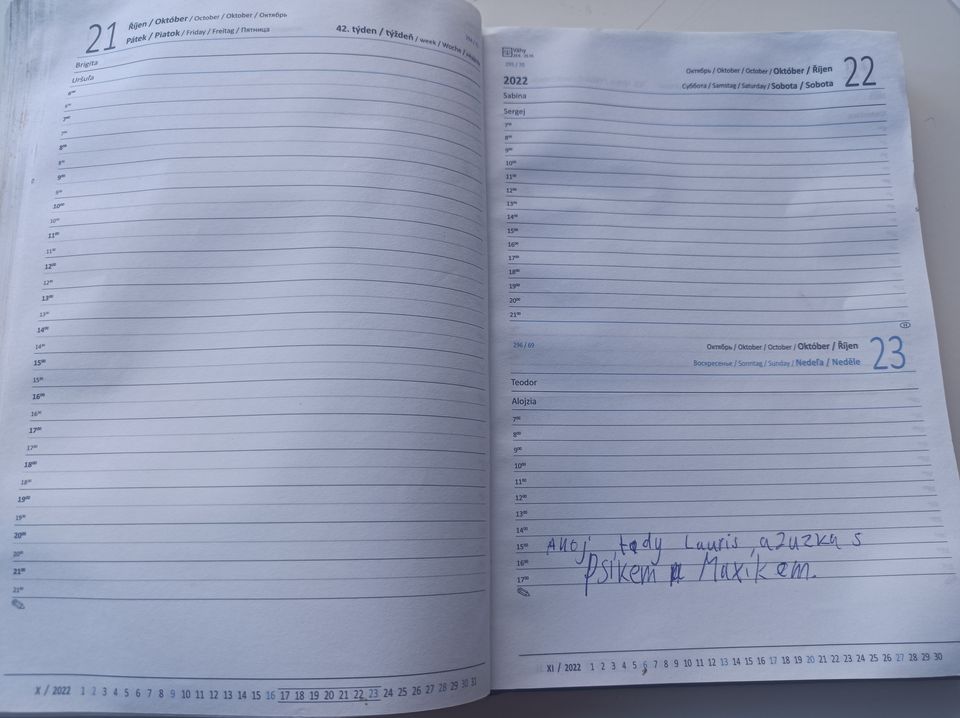 21
Říjen / Október / October / Oktober / Октябрь
Pátek / Piatok / Friday / Freitag / Пятница
42. týden / týždeň / week / Woche /
Brigita
Uršuľa
6⁰⁰
6³⁰
7⁰⁰
7³⁰
8⁰⁰
8³⁰
9⁰⁰
9³⁰
10⁰⁰
10³⁰
11⁰⁰
11³⁰
12⁰⁰
12³⁰
13⁰⁰
13³⁰
14⁰⁰
14³⁰
15⁰⁰
15³⁰
16⁰⁰
16³⁰
17⁰⁰
17³⁰
18⁰⁰
18³⁰
19⁰⁰
19³⁰
20⁰⁰
20³⁰
21⁰⁰
21³⁰
X / 2022 1 2 3 4 5 6 7 8 9 10 11 12 13 14 15 16 17 18 19 20 21 22 23 24 25 26 27 28 29 30 31
Váhy
295 / 70
2022
Октябрь / Oktober / October / Október / Říjen
Суббота / Samstag / Saturday / Sobota / Sobota
22
Sabina
Sergej
7⁰⁰
8⁰⁰
9⁰⁰
10⁰⁰
11⁰⁰
12⁰⁰
13⁰⁰
14⁰⁰
15⁰⁰
16⁰⁰
17⁰⁰
18⁰⁰
19⁰⁰
20⁰⁰
21⁰⁰
296 / 69
Октябрь / Oktober / October / Október / Říjen
Воскресенье / Sonntag / Sunday / Nedeľa / Neděle
23
Teodor
Alojzia
7⁰⁰
8⁰⁰
9⁰⁰
10⁰⁰
11⁰⁰
12⁰⁰
13⁰⁰
14⁰⁰
15⁰⁰ AHOJ, tady Lauris, a zuzka s
16⁰⁰ Psikem a Maxikem.
17⁰⁰
XI / 2022 1 2 3 4 5 6 7 8 9 10 11 12 13 14 15 16 17 18 19 20 21 22 23 24 25 26 27 28 29 30